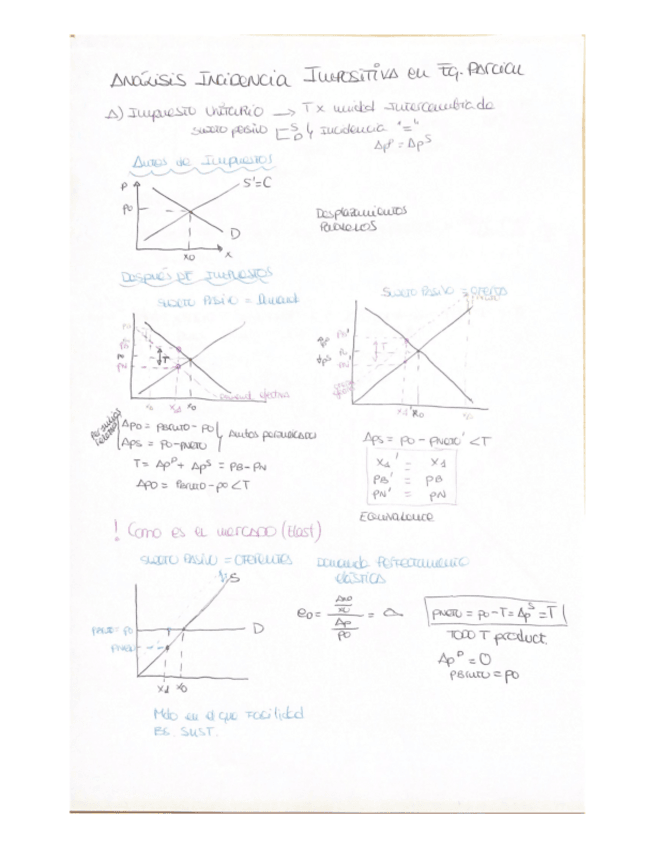 ANÁLISIS INCIDENCIA IMPOSITIVA EN EQ. PARCIAL
A) IMPUESTO UNITARIO → T x unidad intercambiada
SUJETO PASIVO S D INCIDENCIA "="
Δp^D = Δp^S
ANTES DE IMPUESTOS
P
S'=C
P0
D
X0
X
DESPLAZAMIENTOS
PARALELOS
DESPUÉS DE IMPUESTOS
SUJETO PASIVO = Demand
SUJETO PASIVO = OFERTA
T
T
Demand efectiva
X1
X0
X1'
X0
ΔPD = PBRUTO - P0
ΔPS = P0 - PNETO
Ambos perjudicado
T = Δp^D + Δp^S = PB - PN
ΔPD = PBRUTO - P0 < T
ΔPS = P0 - PNETO' < T
X1' = X1
PB' = PB
PN' = PN
Equivalence
! Como es el mercado (Elast)
SUJETO PASIVO = OFERENTES
Demanda PERFECTAMENTE
elástica
S
D
T
X1
X0
PNETO = P0 - T = Δp^S = T
TODO T product.
Δp^D = 0
PBRUTO = P0
Mdo en el que Facilidad
BS. SUST.